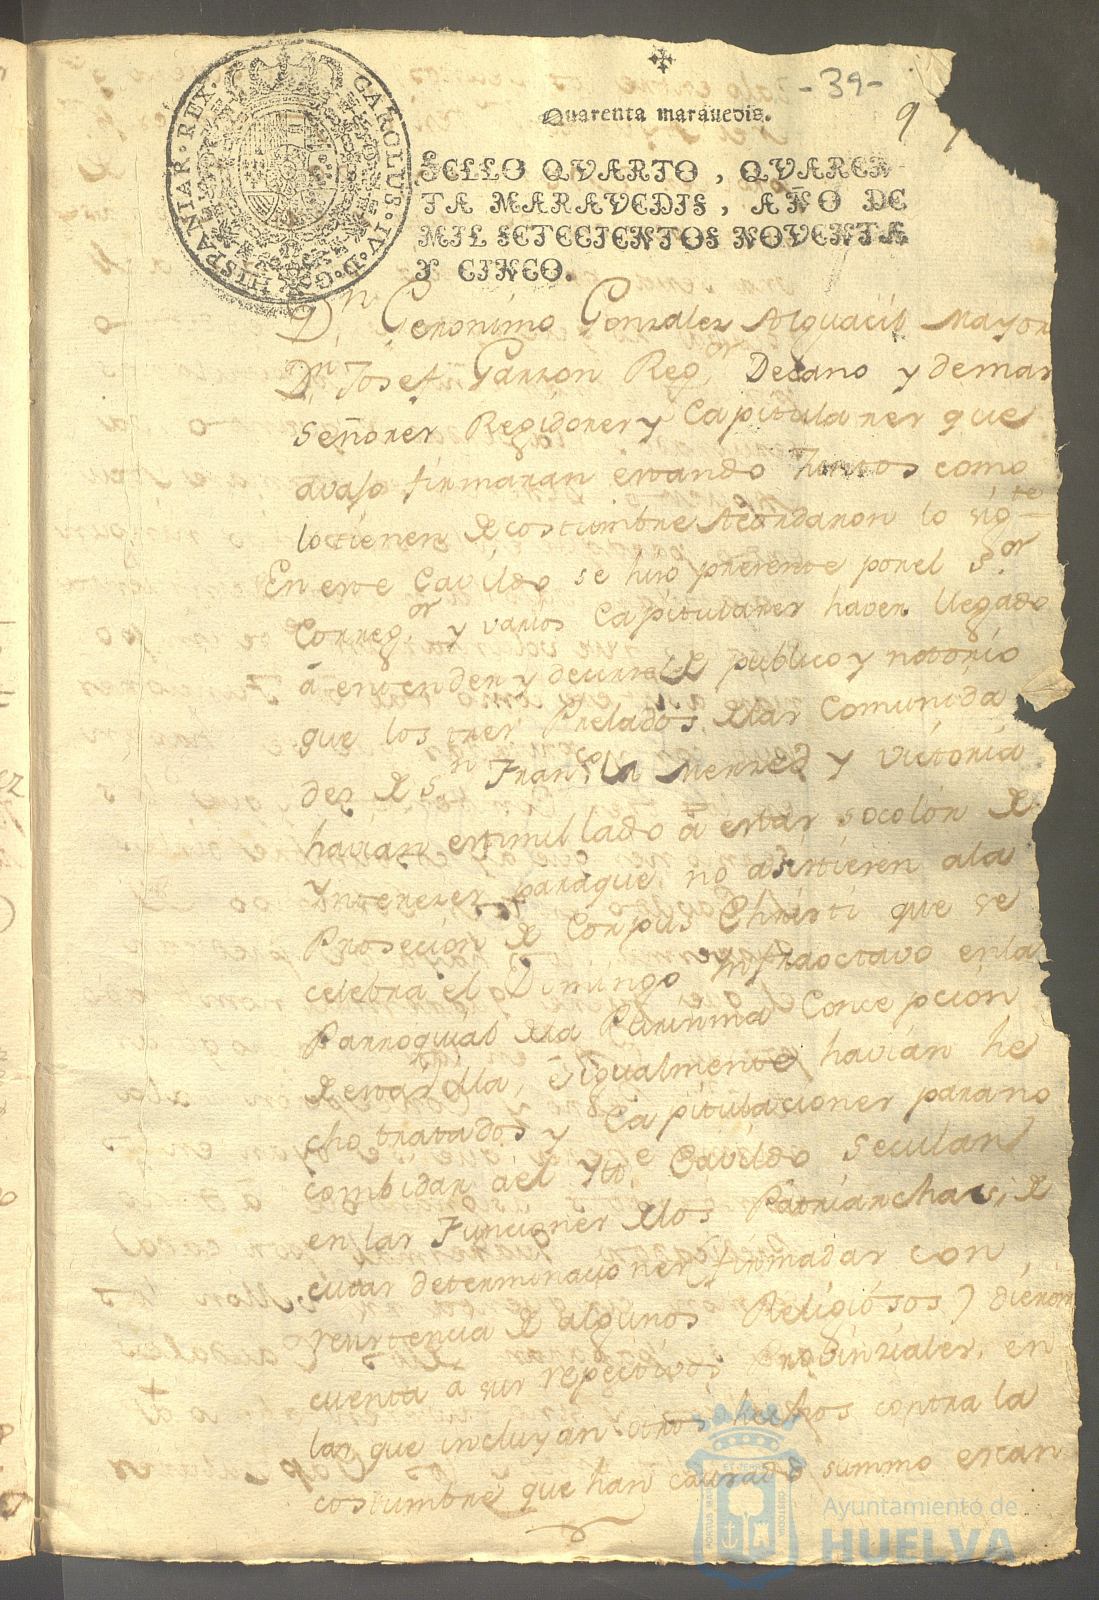 -39-
9
Quarenta maravedis.
CAROLUS·IV·D·G· HISPANIAR·REX·
SELLO QVARTO, QVAREN-
TA MARAVEDIS, AÑO DE
MIL SETECIENTOS NOVENTA
Y CINCO.
Dn Geronimo Gonzalez Alguacil Mayor
Dn Josef Garzon Regor Decano y demas
Señores Regidores y Capitulares que
avajo firmaran estando Juntos como
lo tienen de costumbre Acordaron lo sigte
En este Cavildo se hizo presente por el Sor
Corregor y varios Capitulares haver llegado
á entender y decirse de publico y notorio
que los tres Prelados de las Comunida
des de Sn Franco la Merzed y Victoria
havian estimillado á estar socolòn de
Yntereres para que no asistieren a la
Prosecion de Corpus Christi que se
celebra el Domingo Infraoctavo en la
Parroquial de la Purissima Concepcion
de esta villa, è igualmente havian he
cho tratados y Capitulaciones para no
combidar á el Ytte Cavildo secular
en las Funciones de los Patriarchas, de
cuias determinaciones firmadas con
resistencia de algunos Religiosos, dieron
cuenta a sus respectivos Probinziales, en
las que incluyan otros hechos contra la
costumbre que han causado summo escan
PORTUS MARIS ET TERRAE CUSTODIA
Ayuntamiento de
HUELVA